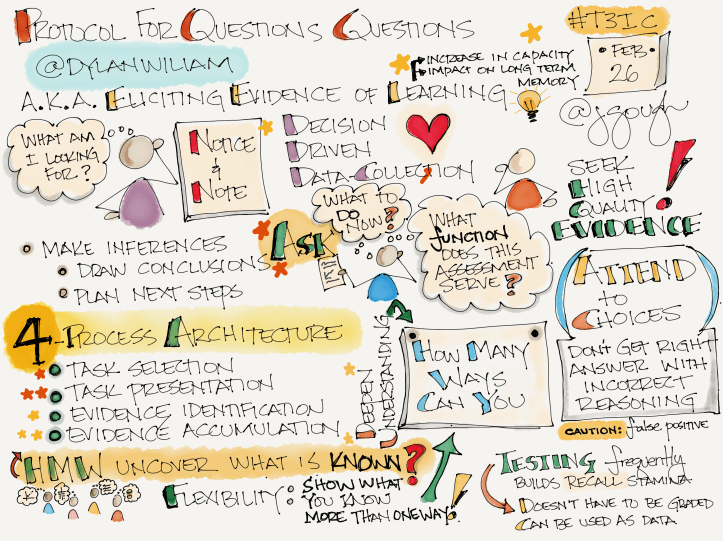 PROTOCOL FOR QUESTIONS QUESTIONS
@DYLANWILIAM
A.K.A. ELICITING EVIDENCE OF LEARNING
INCREASE IN CAPACITY
IMPACT ON LONG TERM
MEMORY
#T3I.C
FEB
26
@jgough
WHAT AM
I LOOKING
FOR?
NOTICE
&
NOTE
DECISION
DRIVEN
DATA-COLLECTION
SEEK
HIGH
QUALITY
EVIDENCE
MAKE INFERENCES
DRAW CONCLUSIONS
PLAN NEXT STEPS
ASK
WHAT TO
DO
NOW?
WHAT
FUNCTION
DOES THIS
ASSESSMENT
SERVE?
ATTEND
to
CHOICES
DON'T GET RIGHT
ANSWER WITH
INCORRECT
REASONING
CAUTION: false positive
4-PROCESS ARCHITECTURE
TASK SELECTION
TASK PRESENTATION
EVIDENCE IDENTIFICATION
EVIDENCE ACCUMULATION
DEEPEN
UNDERSTANDING
HOW MANY
WAYS
CAN YOU
HMW UNCOVER WHAT IS KNOWN?
FLEXIBILITY:
SHOW WHAT
YOU KNOW
MORE THAN ONE WAY!
TESTING frequently
BUILDS RECALL STAMINA
DOESN'T HAVE TO BE GRADED
CAN BE USED AS DATA